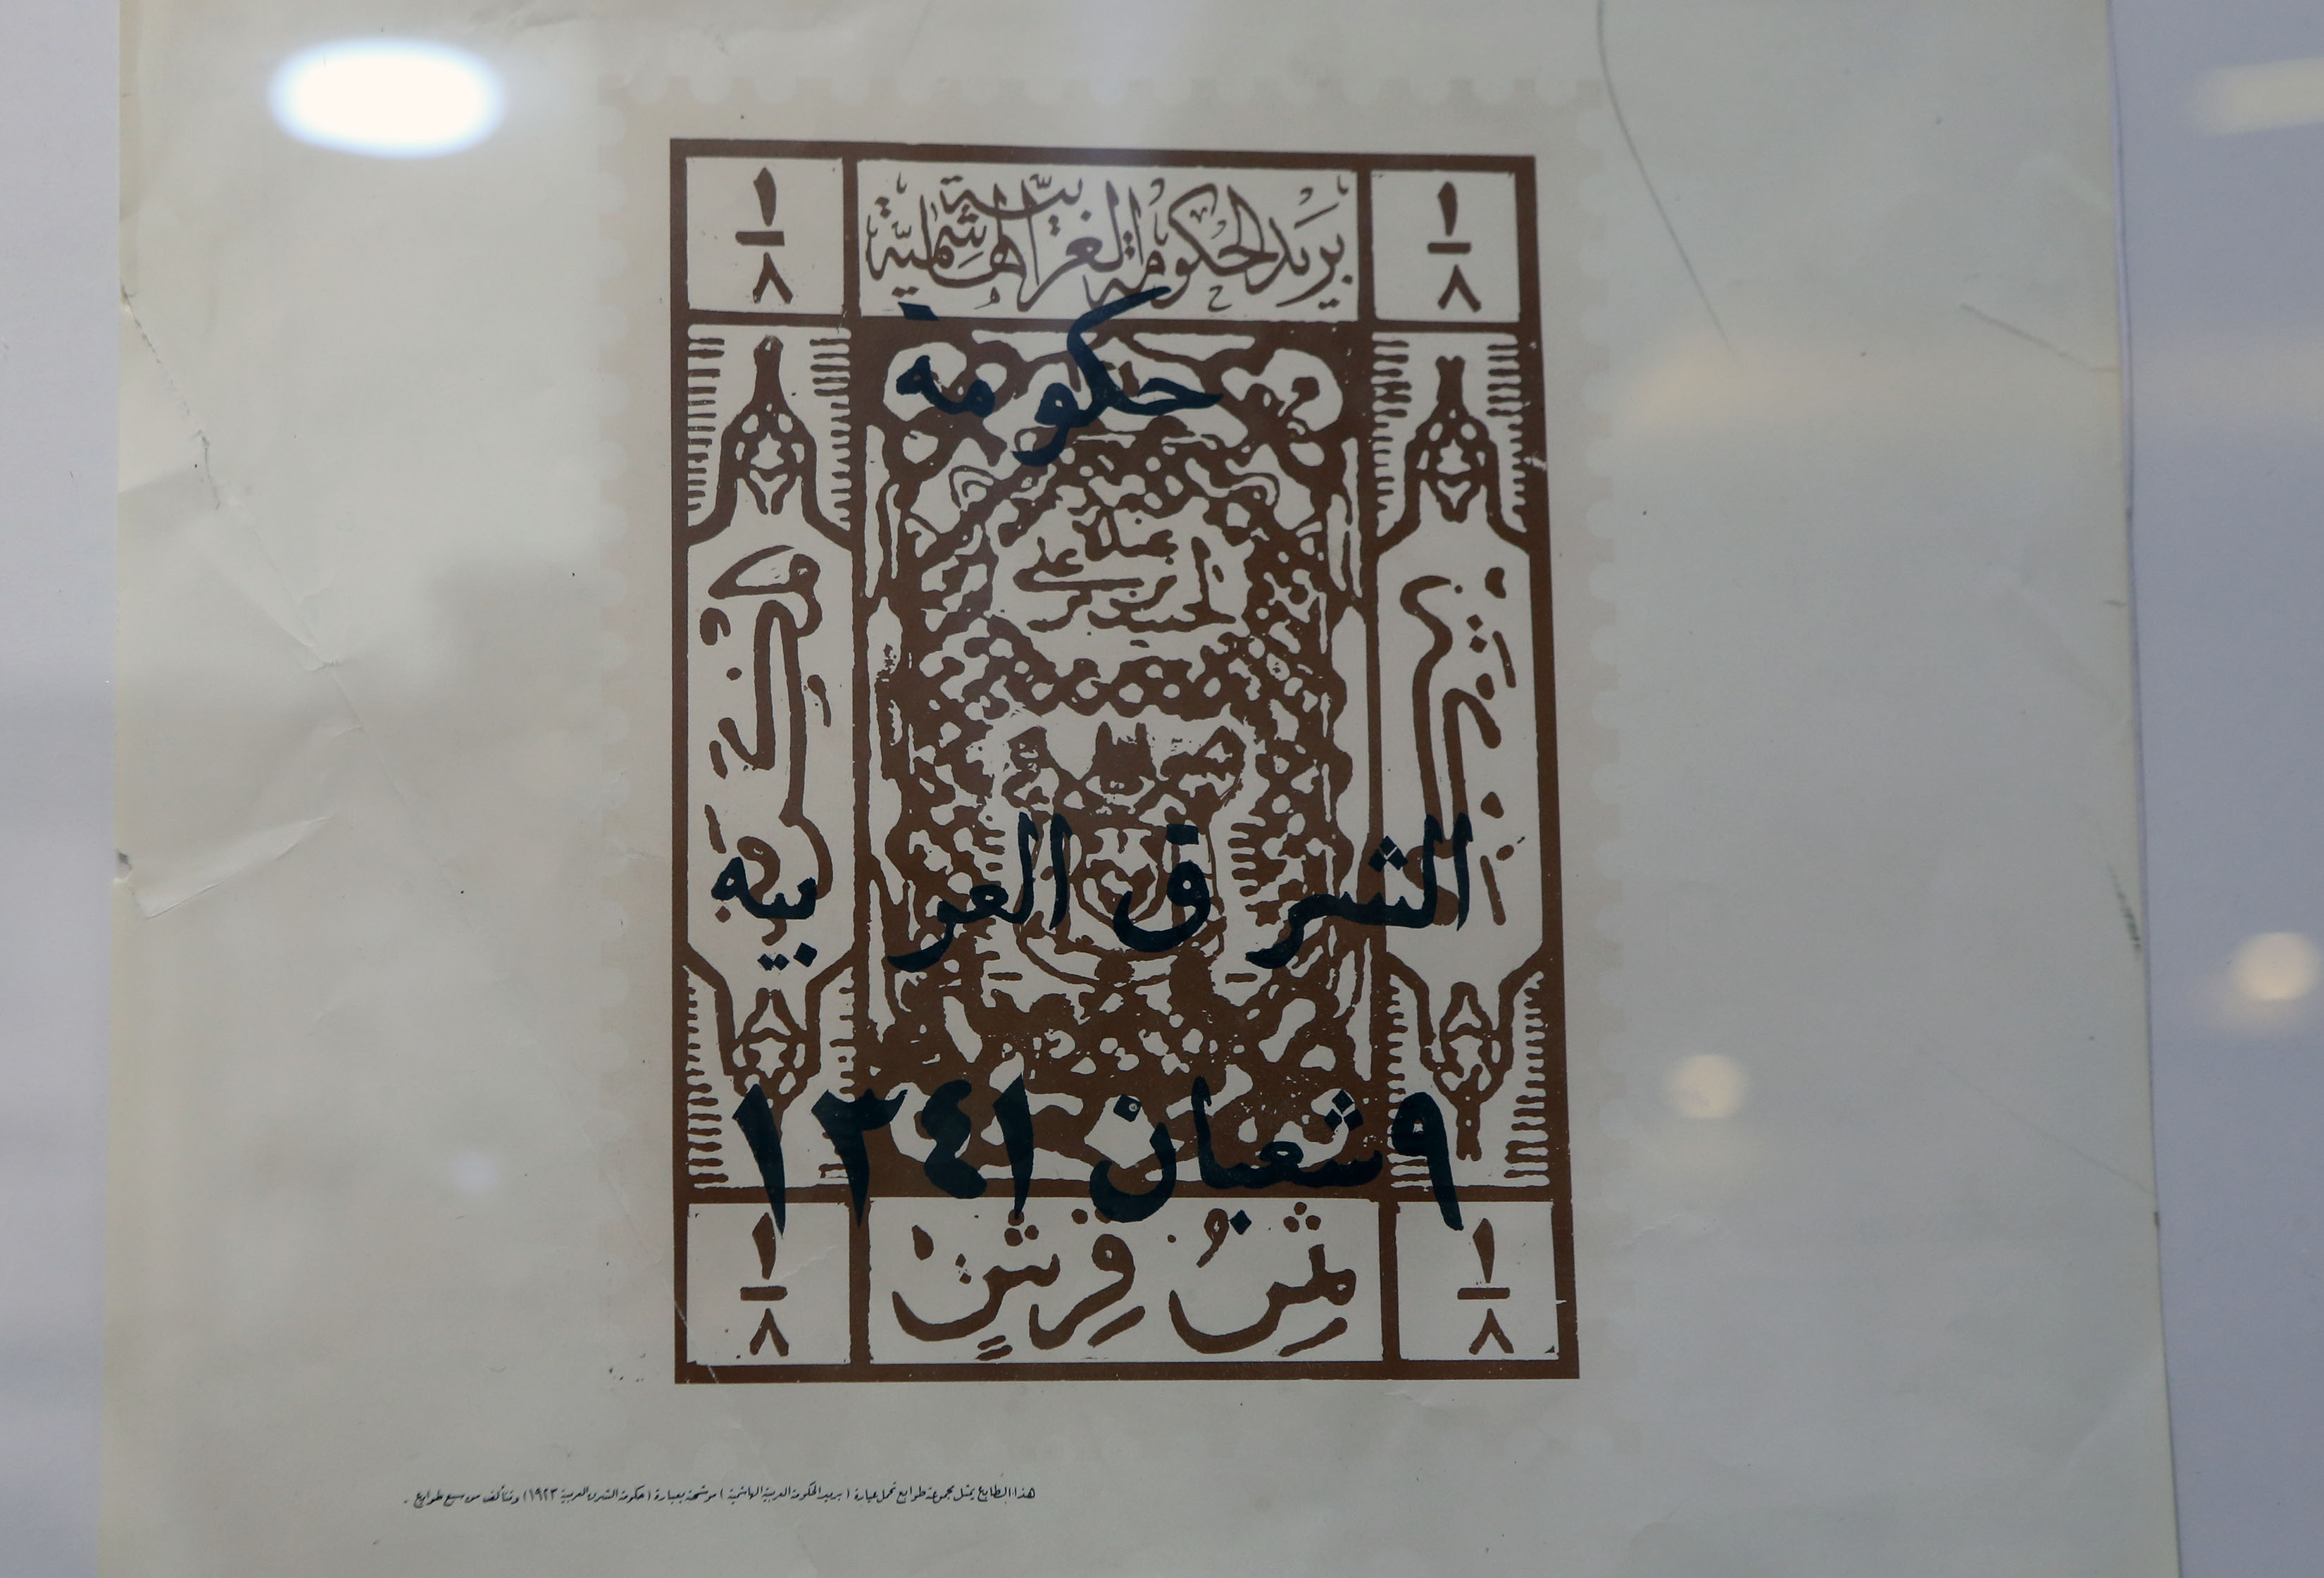 ١/٨ بريد الحكومة العربية الهاشمية ١/٨
حكومة
الحسين بن علي
الشرق العربيه
٩ شعبان ١٣٤١
١/٨ ثمن قرش ١/٨
هذا الطابع يمثل مجموعة طوابع تحمل عبارة ( بريد الحكومة العربية الهاشمية ) موشحة بعبارة ( حكومة الشرق العربية ١٩٢٣ ) وتتألف من سبع طوابع .